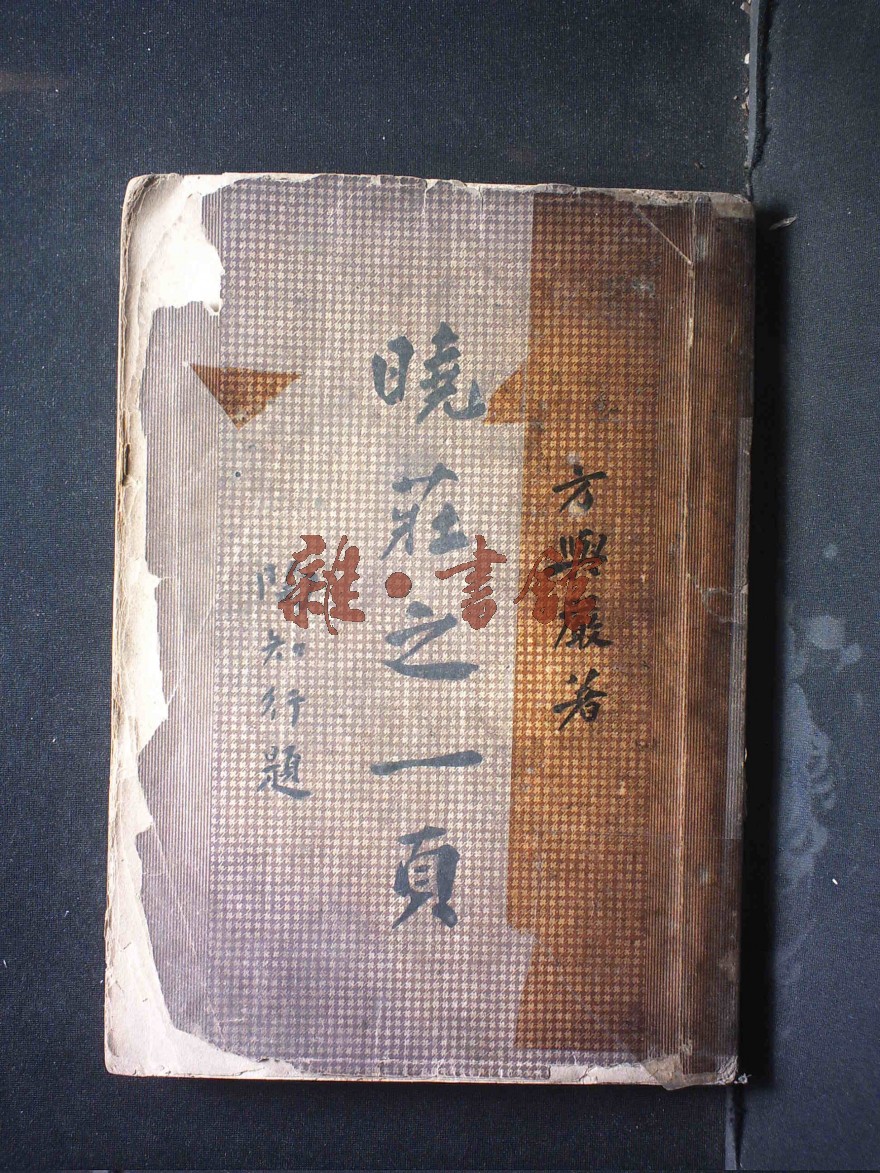 方與嚴著
曉莊之一頁
陶知行題
雜·書館